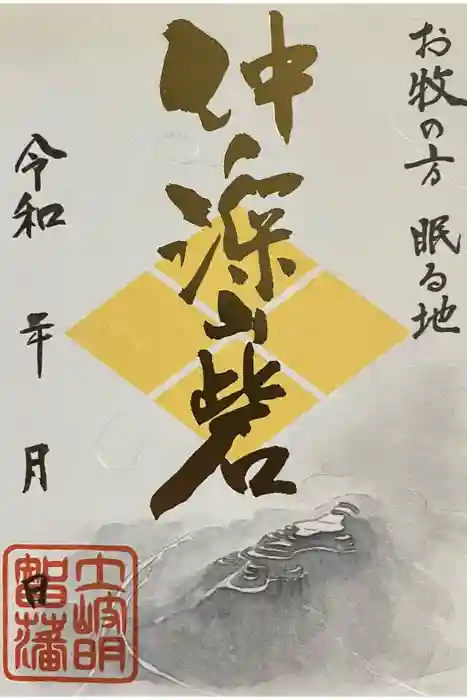 お牧の方 眠る地
仲深山砦
令和 年 月 日
土岐明
智藩